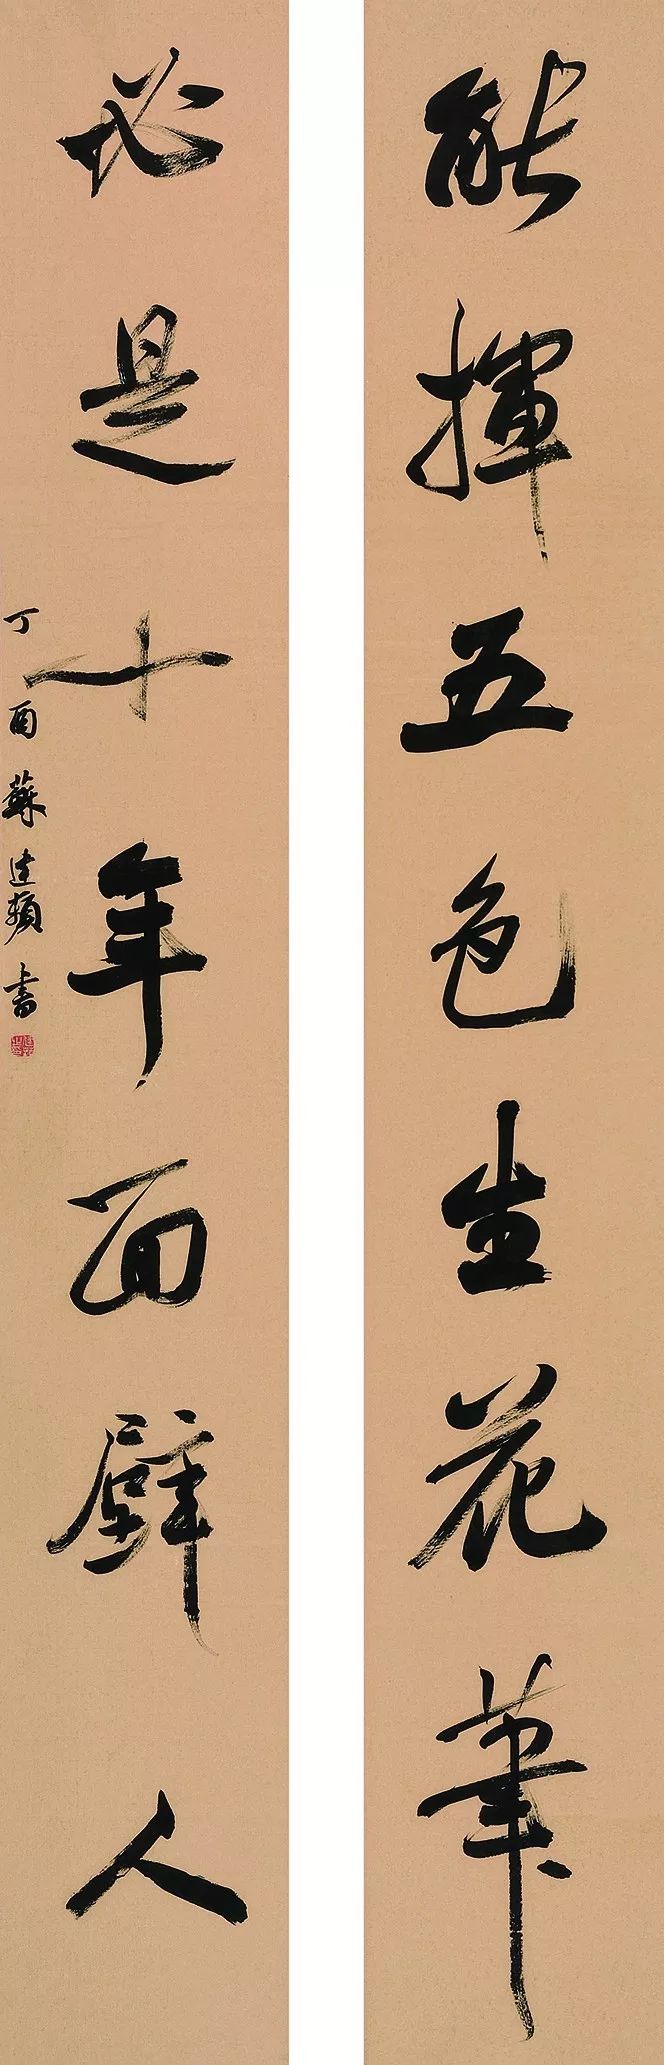 能揮五色生花筆
必是十年面壁人
丁酉蘇建頻書